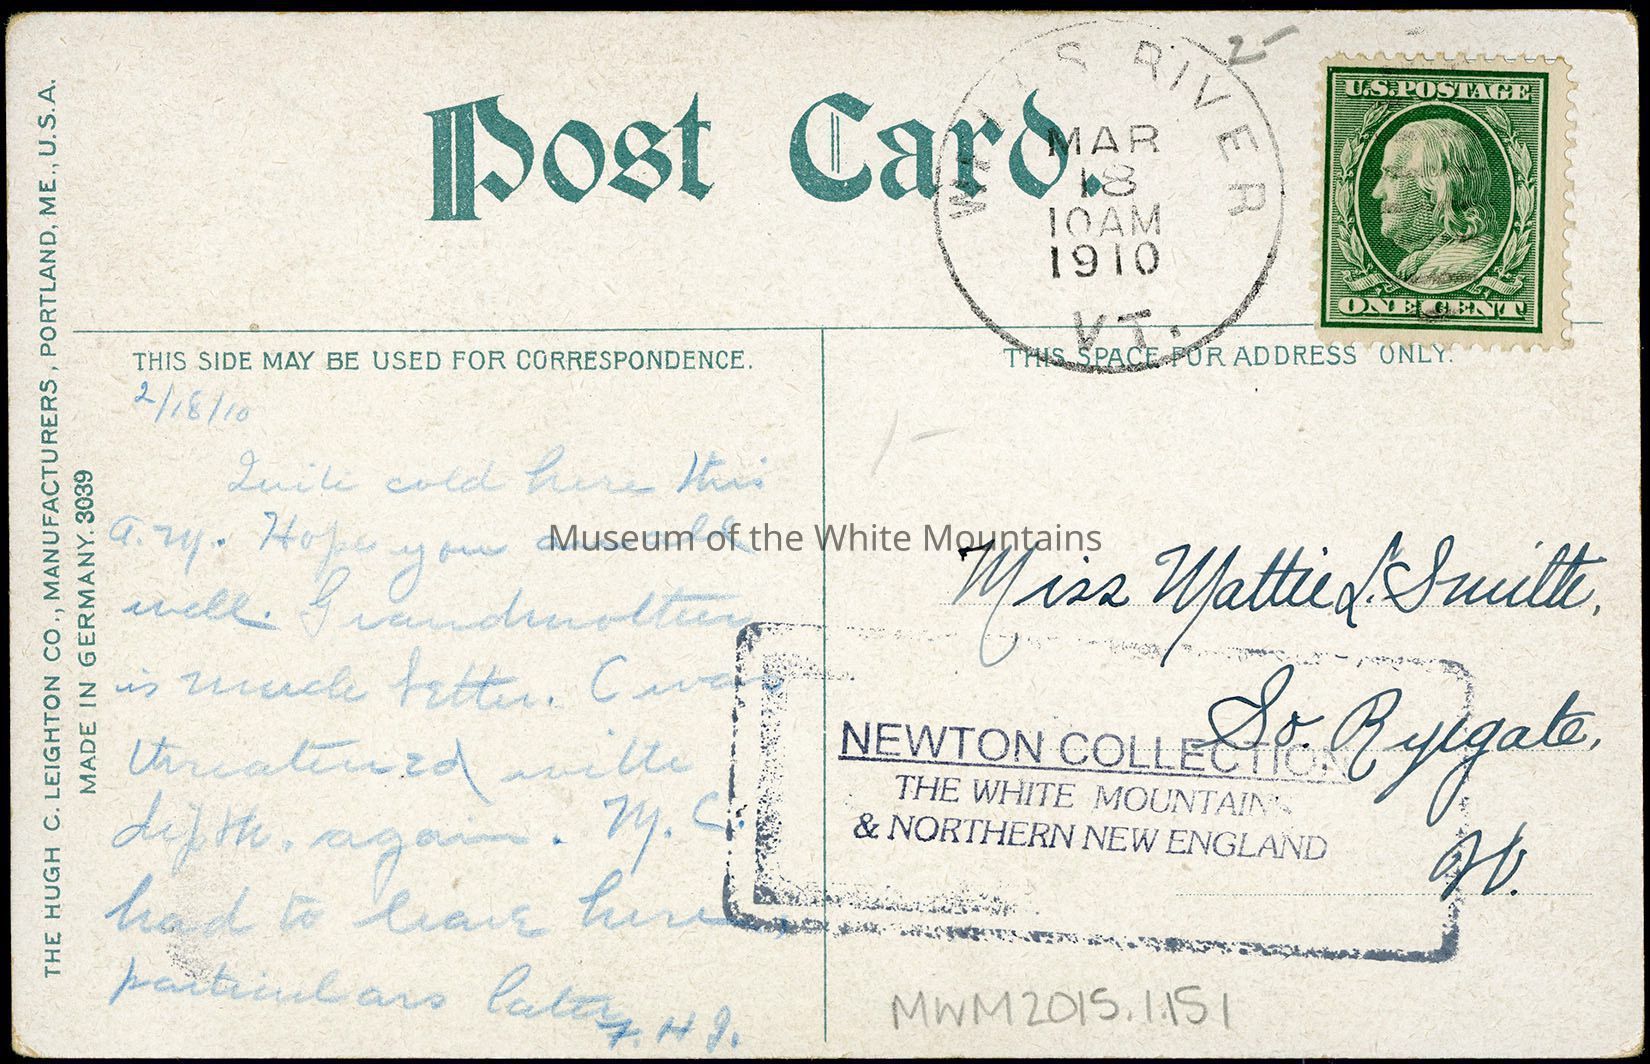 Post Card.
WELLS RIVER
MAR
18
10AM
1910
VT.
2-
U.S. POSTAGE
ONE CENT
THIS SIDE MAY BE USED FOR CORRESPONDENCE.
THIS SPACE FOR ADDRESS ONLY.
2/18/10
Quite cold here this
a.m. Hope you are all
well. Grandmother
is much better. C was
threatened with
dipth. again. M. C.
had to leave here,
particulars later
F. H. J.
Miss Mattie L. Smith,
So. Ryegate,
Vt.
NEWTON COLLECTION
THE WHITE MOUNTAINS
& NORTHERN NEW ENGLAND
MWM2015.1.151
THE HUGH C. LEIGHTON CO., MANUFACTURERS, PORTLAND, ME., U.S.A.
MADE IN GERMANY. 3039
Museum of the White Mountains